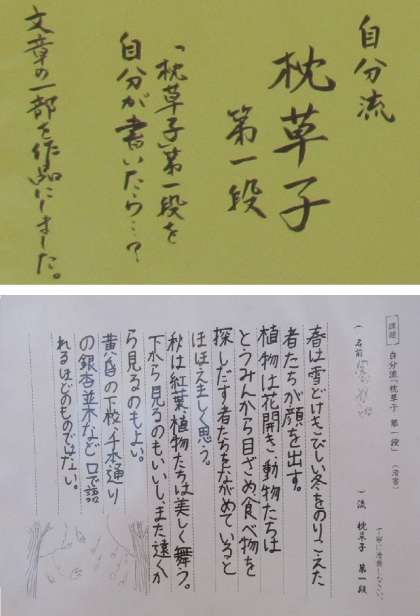 自分流
枕草子
第一段
「枕草子」第一段を
自分が書いたら…?
文章の一部を作品にしました。
課題 自分流「枕草子 第一段」(清書)
(名前
)流 枕草子 第一段
春は雪どけ、きびしい冬をのりこえた
者たちが顔を出す。
植物は花開き、動物たちは
とうみんから目ざめ、食べ物を
探しだす者たちをながめていると
ほほえましく思う。
秋は紅葉、植物たちは美しく舞う。
下から見るのもいいし、また遠くか
ら見るのもよい。
黄色の下校、千本通り
の銀杏並木など口で語
れるほどのものではない。